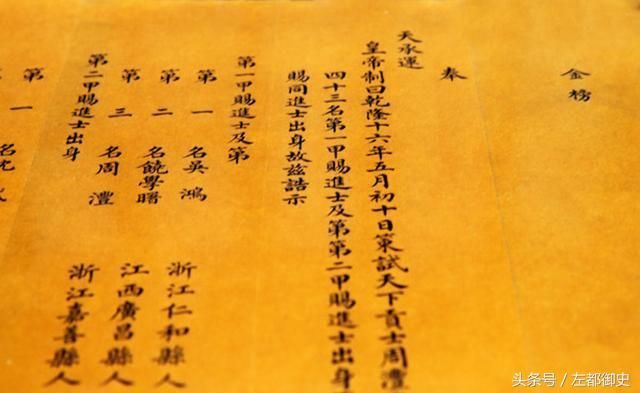 金榜
奉
天承運
皇帝制曰乾隆十六年五月初十日策試天下貢士周澧
四十三名第一甲賜進士及第第二甲賜進士出身
賜同進士出身故茲誥示
第一甲賜進士及第
第一名吳鴻 浙江仁和縣人
第二名饒學曙 江西廣昌縣人
第三名周澧 浙江嘉善縣人
第二甲賜進士出身
第一名
头条号 / 左都御史